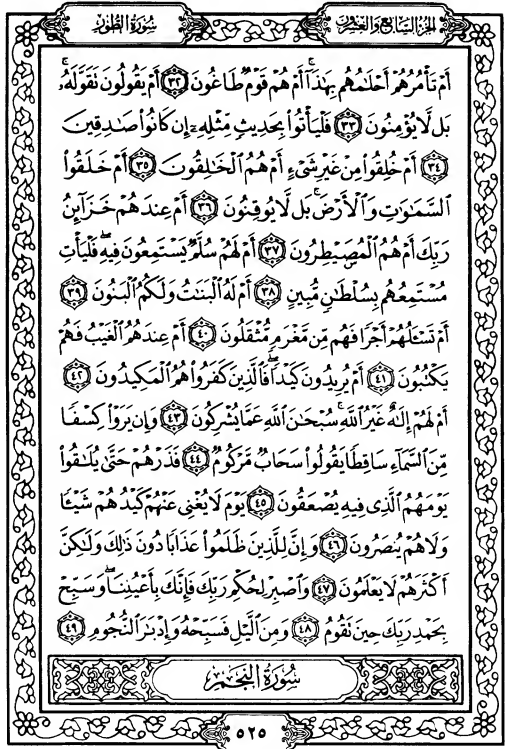 الجزء السابع والعشرون
سورة الطور
أَمْ تَأْمُرُهُمْ أَحْلَٰمُهُم بِهَٰذَآ ۚ أَمْ هُمْ قَوْمٌ طَاغُونَ ٣٢ أَمْ يَقُولُونَ تَقَوَّلَهُۥ ۚ
بَل لَّا يُؤْمِنُونَ ٣٣ فَلْيَأْتُوا۟ بِحَدِيثٍ مِّثْلِهِۦٓ إِن كَانُوا۟ صَٰدِقِينَ
٣٤ أَمْ خُلِقُوا۟ مِنْ غَيْرِ شَىْءٍ أَمْ هُمُ ٱلْخَٰلِقُونَ ٣٥ أَمْ خَلَقُوا۟
ٱلسَّمَٰوَٰتِ وَٱلْأَرْضَ ۚ بَل لَّا يُوقِنُونَ ٣٦ أَمْ عِندَهُمْ خَزَآئِنُ
رَبِّكَ أَمْ هُمُ ٱلْمُصَۣيْطِرُونَ ٣٧ أَمْ لَهُمْ سُلَّمٌ يَسْتَمِعُونَ فِيهِ ۖ فَلْيَأْتِ
مُسْتَمِعُهُم بِسُلْطَٰنٍ مُّبِينٍ ٣٨ أَمْ لَهُ ٱلْبَنَٰتُ وَلَكُمُ ٱلْبَنُونَ ٣٩
أَمْ تَسْـَٔلُهُمْ أَجْرًا فَهُم مِّن مَّغْرَمٍ مُّثْقَلُونَ ٤٠ أَمْ عِندَهُمُ ٱلْغَيْبُ فَهُمْ
يَكْتُبُونَ ٤١ أَمْ يُرِيدُونَ كَيْدًا ۖ فَٱلَّذِينَ كَفَرُوا۟ هُمُ ٱلْمَكِيدُونَ ٤٢
أَمْ لَهُمْ إِلَٰهٌ غَيْرُ ٱللَّهِ ۚ سُبْحَٰنَ ٱللَّهِ عَمَّا يُشْرِكُونَ ٤٣ وَإِن يَرَوْا۟ كِسْفًا
مِّنَ ٱلسَّمَآءِ سَاقِطًا يَقُولُوا۟ سَحَابٌ مَّرْكُومٌ ٤٤ فَذَرْهُمْ حَتَّىٰ يُلَٰقُوا۟
يَوْمَهُمُ ٱلَّذِى فِيهِ يُصْعَقُونَ ٤٥ يَوْمَ لَا يُغْنِى عَنْهُمْ كَيْدُهُمْ شَيْـًٔا
وَلَا هُمْ يُنصَرُونَ ٤٦ وَإِنَّ لِلَّذِينَ ظَلَمُوا۟ عَذَابًا دُونَ ذَٰلِكَ وَلَٰكِنَّ
أَكْثَرَهُمْ لَا يَعْلَمُونَ ٤٧ وَٱصْبِرْ لِحُكْمِ رَبِّكَ فَإِنَّكَ بِأَعْيُنِنَا ۖ وَسَبِّحْ
بِحَمْدِ رَبِّكَ حِينَ تَقُومُ ٤٨ وَمِنَ ٱلَّيْلِ فَسَبِّحْهُ وَإِدْبَٰرَ ٱلنُّجُومِ ٤٩
سُورَةُ النَّجْمِ
٥٢٥